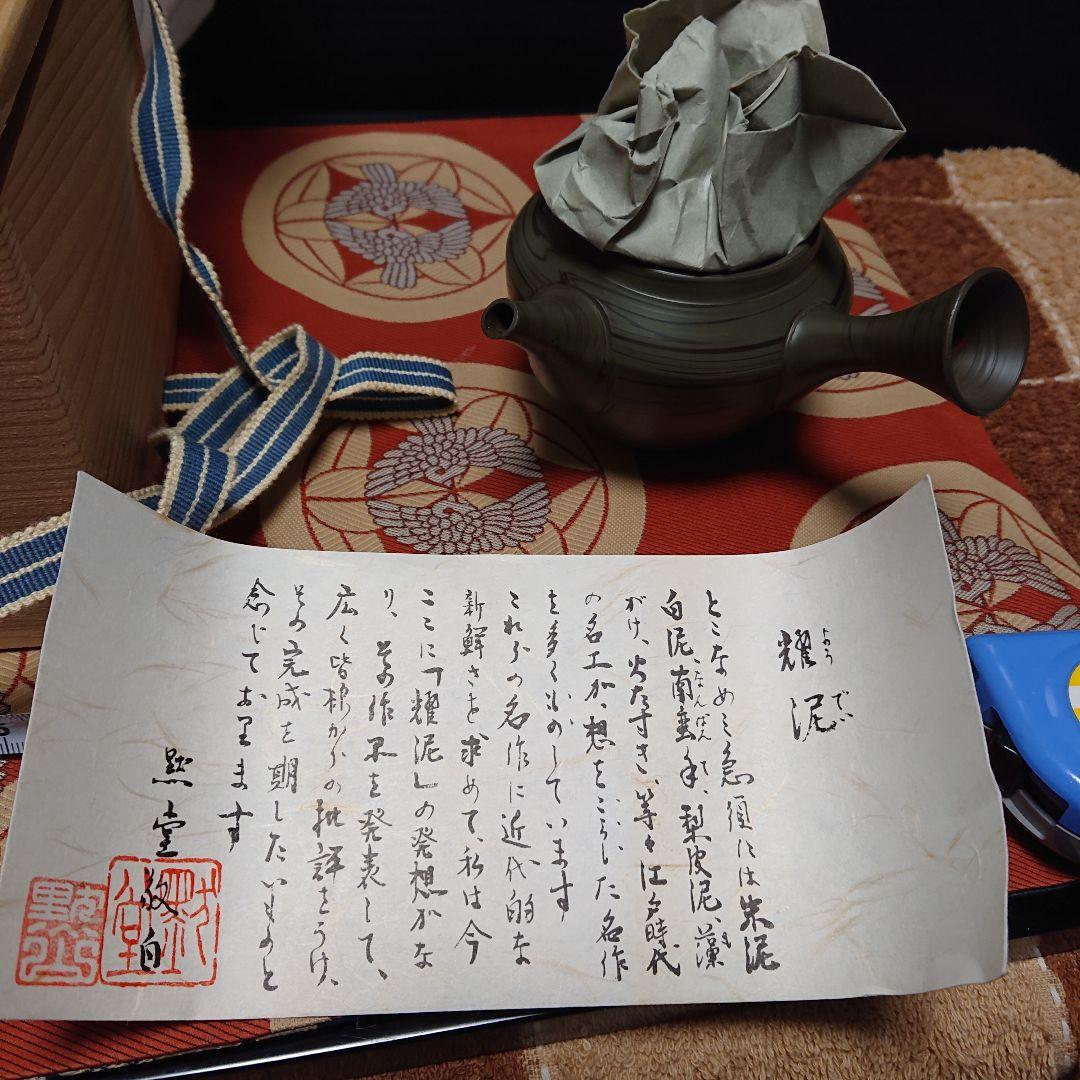 耀泥
ようでい
とこなめ急須には朱泥
白泥、南蛮手、梨皮泥、藻
なんばんで
も
がけ、火だすき、等々江戸時代
の名工が、想をこらした名作
を多くものしています
これらの名作に近代的な
新鮮さを求めて、私は今
ここに「耀泥」の発想かな
り、その作品を発表して、
広く皆様からの批評をうけ、
その完成を期したいものと
念じております
黙堂
敬白